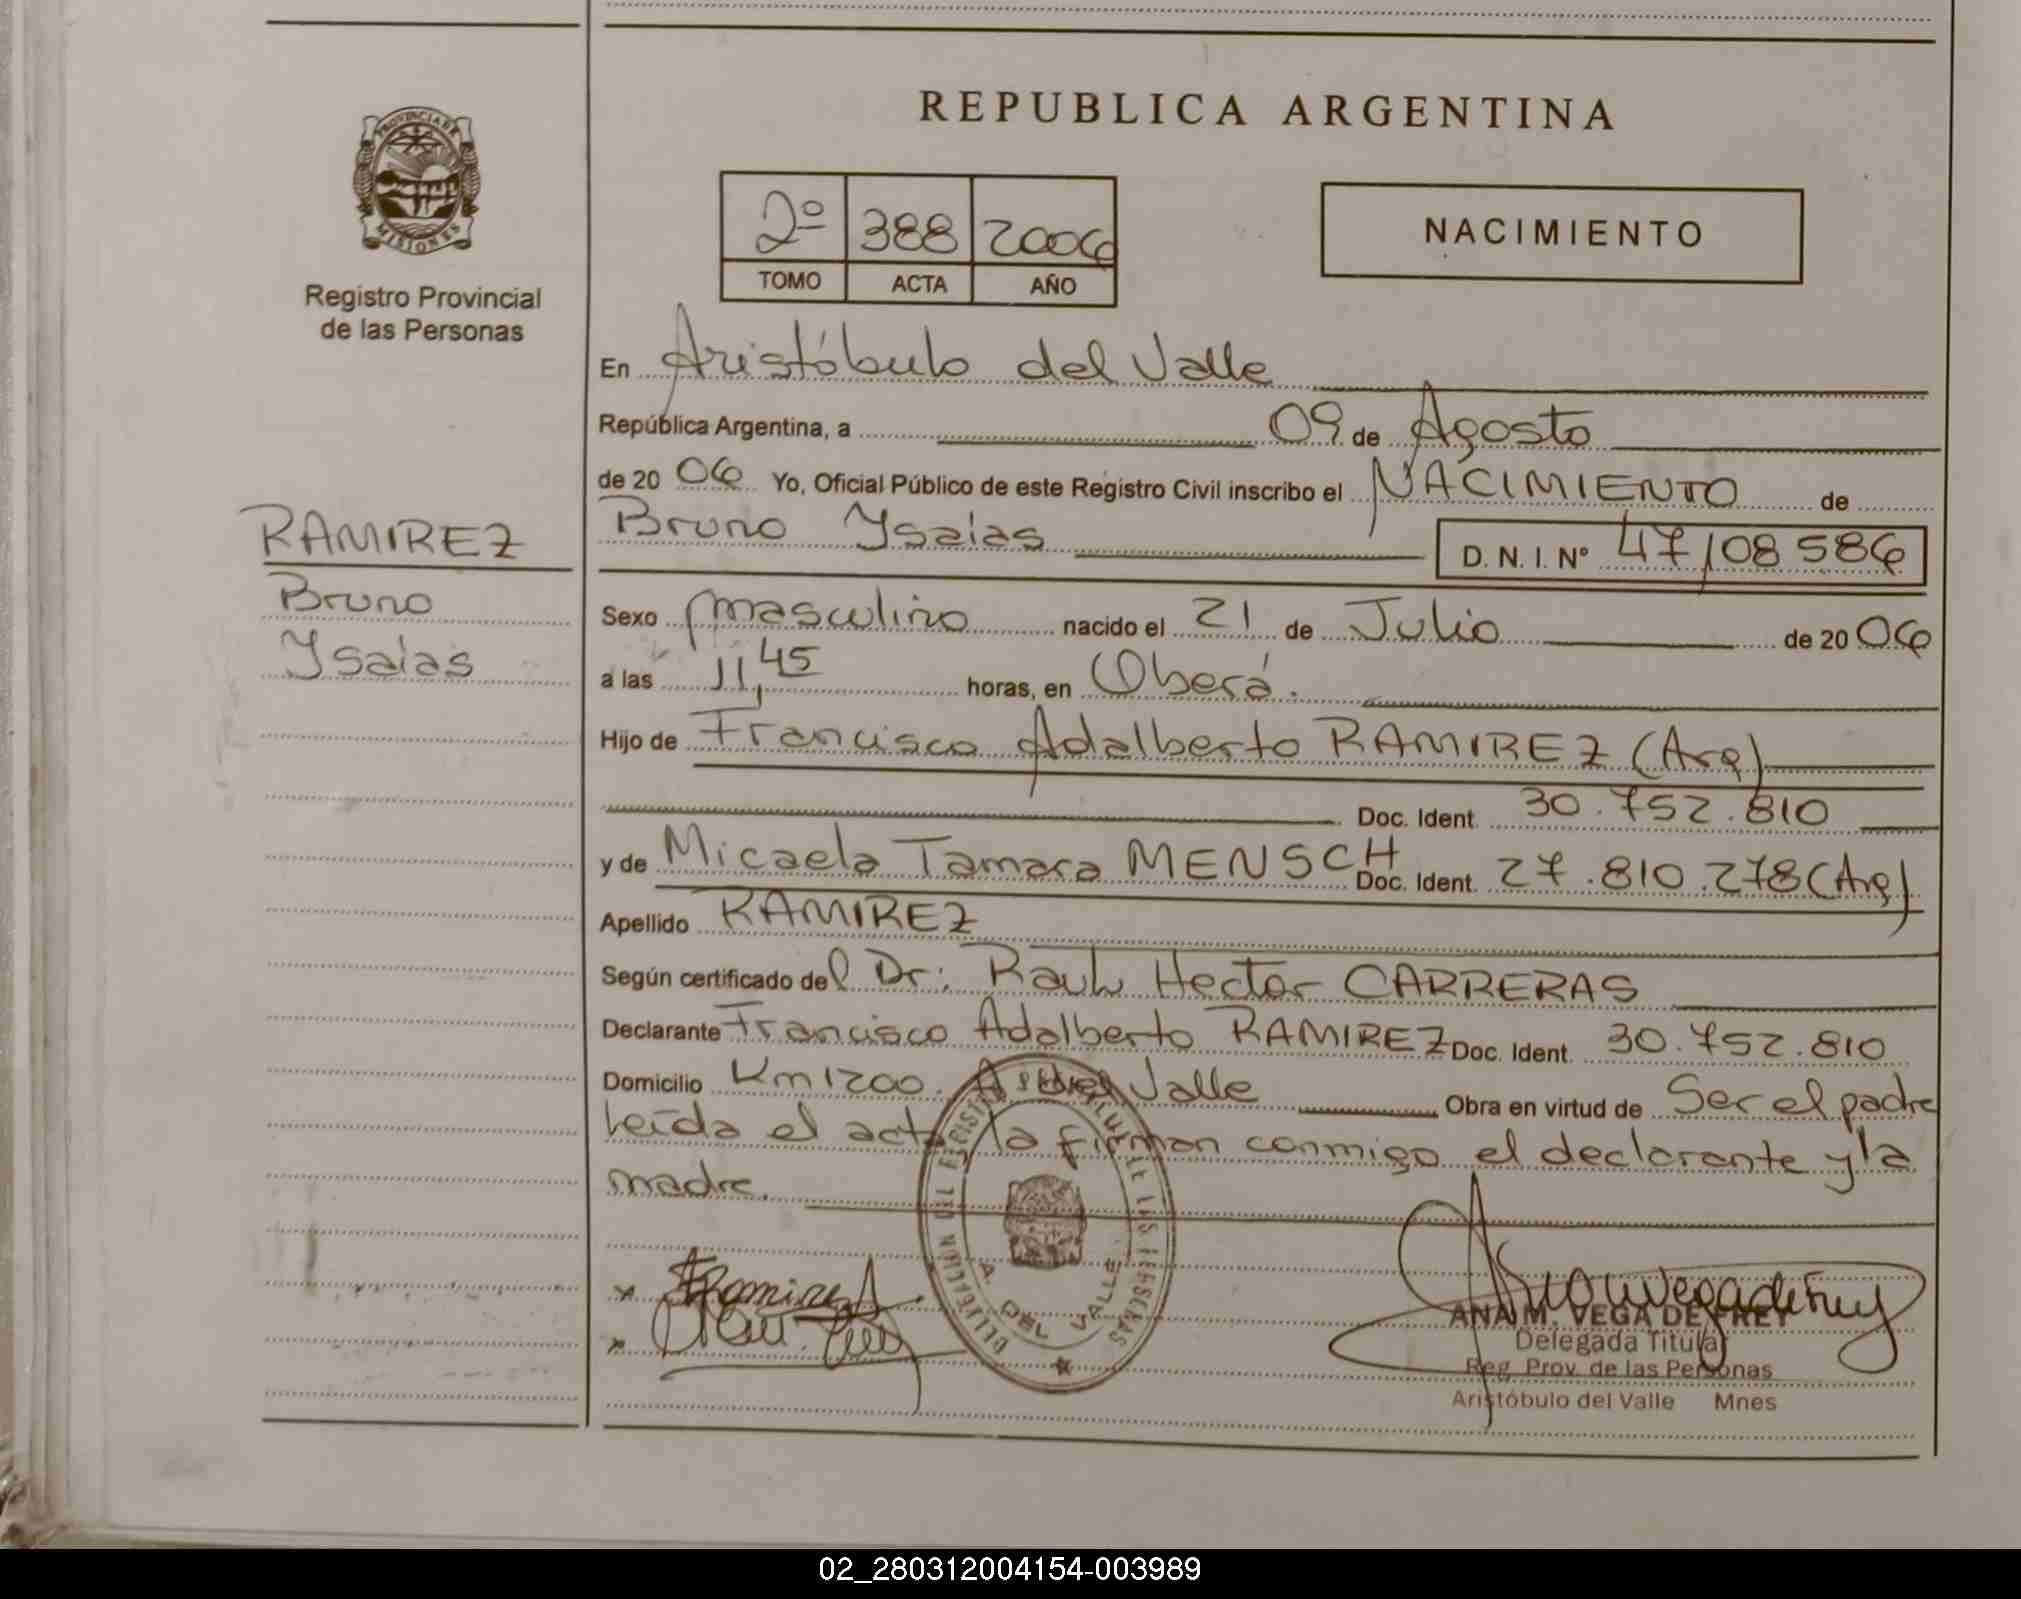 REPUBLICA ARGENTINA
PROVINCIA DE
MISIONES
Registro Provincial
de las Personas
2º 388 2006
TOMO ACTA AÑO
NACIMIENTO
RAMIREZ
Bruno
Ysaias
En Aristóbulo del Valle
República Argentina, a 09 de Agosto
de 20 06 Yo, Oficial Público de este Registro Civil inscribo el NACIMIENTO de
Bruno Ysaias D. N. I. Nº 47108586
Sexo masculino nacido el 21 de Julio de 20 06
a las 11,45 horas, en Oberá.
Hijo de Francisco Adalberto RAMIREZ (Arg)
Doc. Ident. 30.752.810
y de Micaela Tamara MENSCH Doc. Ident. 27.810.278 (Arg)
Apellido RAMIREZ
Según certificado del Dr: Raul Hector CARRERAS
Declarante Francisco Adalberto RAMIREZ Doc. Ident. 30.752.810
Domicilio Km 1200. A. del Valle Obra en virtud de Ser el padre
Leída el acta la firman conmigo el declarante y la
madre.
A. DEL VALLE
ANA M. VEGA DE FREY
Delegada Titular
Reg. Prov. de las Personas
Aristóbulo del Valle Mnes
02_280312004154-003989